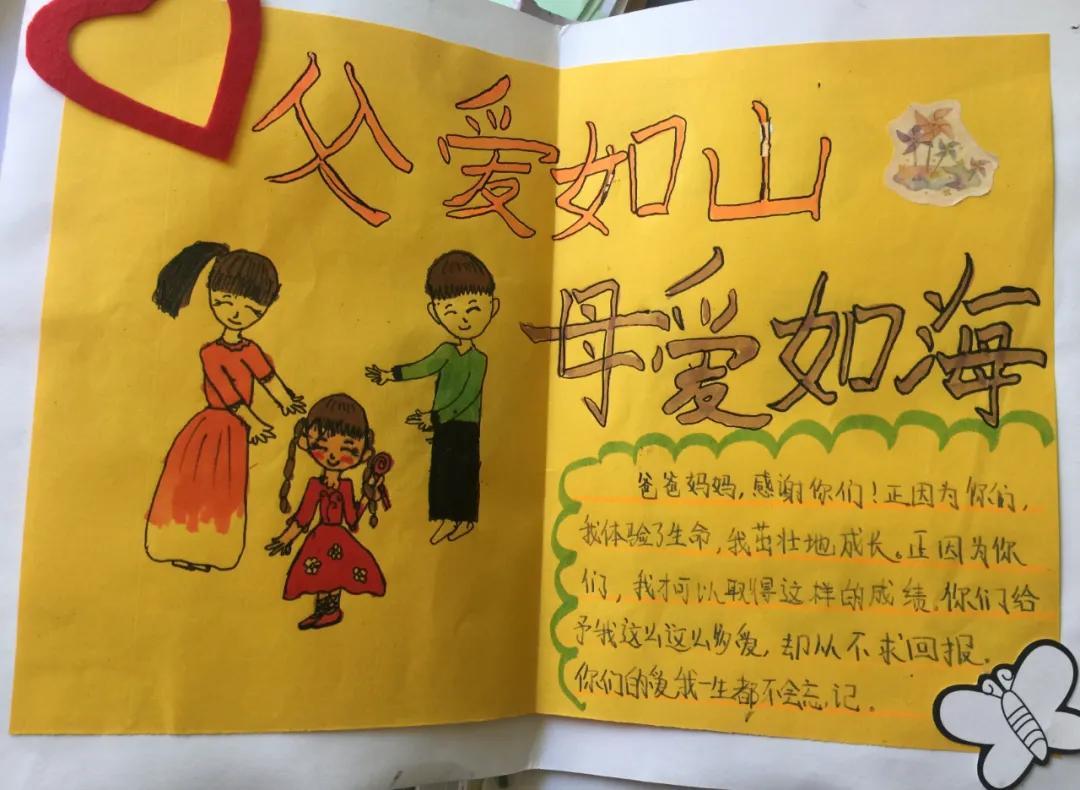 父爱如山
母爱如海
爸爸妈妈，感谢你们！正因为你们，
我体验了生命，我茁壮地成长。正因为你
们，我才可以取得这样的成绩。你们给
予我这么这么多爱，却从不求回报。
你们的爱我一生都不会忘记。